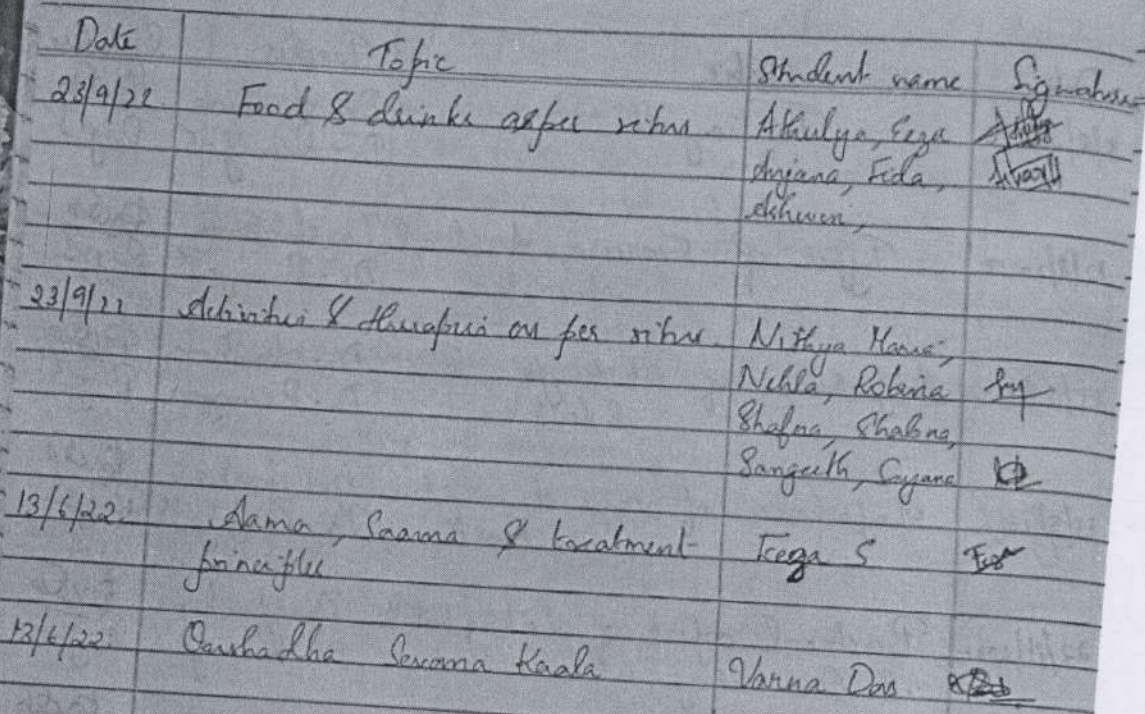 Date Topic Student name Signature
23/9/22 Food & drinks as per ritus Athulya, Feza
Anjana, Fida,
Ashwin,
23/9/22 Activities & therapies as per ritus Nithya
Nehla, Robina
Shafna, Shabna,
Sangeeth, Sayana
13/6/22 Aama, Saama & treatment S
principles
13/6/22 Oaushadha Sevana Kaala Varna Das